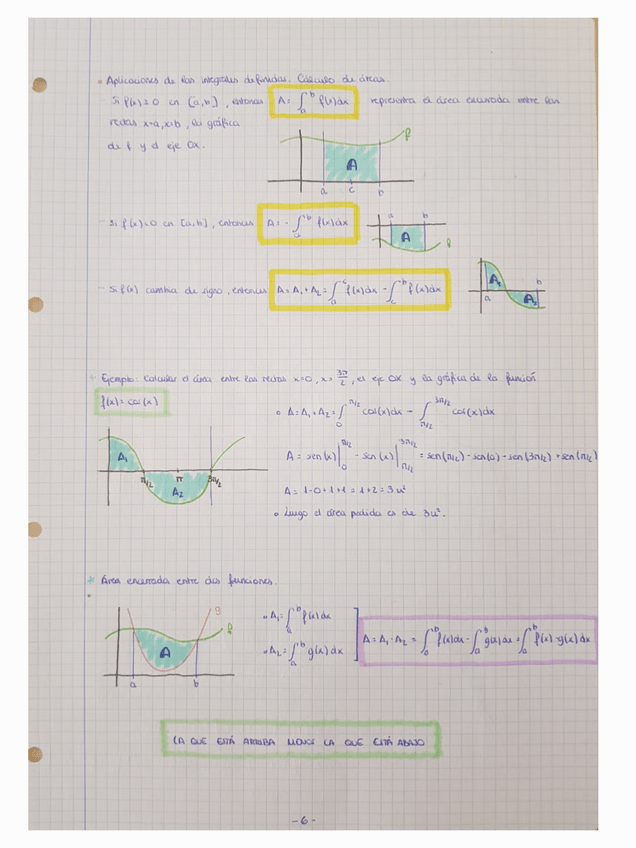 • Aplicaciones de las integrales definidas. Cálculo de áreas.
- Si f(x) ≥ 0 en [a,b], entonces A = ∫_a^b f(x)dx representa el área encerrada entre las
rectas x=a, x=b, la gráfica
de f y el eje OX.
f
A
a c b
- Si f(x)<0 en [a,b], entonces A = - ∫_a^b f(x)dx
a b
A
f
- Si f(x) cambia de signo, entonces A = A₁ + A₂ = ∫_a^c f(x)dx - ∫_c^b f(x)dx
A₁
a
b
A₂
* Ejemplo: Calcular el área entre las rectas x=0, x = 3π/2, el eje OX y la gráfica de la función
f(x) = cos(x)
• A = A₁ + A₂ = ∫_0^{π/2} cos(x)dx - ∫_{π/2}^{3π/2} cos(x)dx
A = sen(x)|_0^{π/2} - sen(x)|_{π/2}^{3π/2} = sen(π/2) - sen(0) - sen(3π/2) + sen(π/2)
A₁
π/2 π 3π/2
A₂
A = 1-0+1+1 = 1+2 = 3u²
• Luego el área pedida es de 3u².
* Área encerrada entre dos funciones.
g
f
A
a b
• A₁ = ∫_a^b f(x)dx
• A₂ = ∫_a^b g(x)dx
A = A₁ - A₂ = ∫_a^b f(x)dx - ∫_a^b g(x)dx = ∫_a^b f(x)-g(x)dx
LA QUE ESTÁ ARRIBA MENOS LA QUE ESTÁ ABAJO
-6-